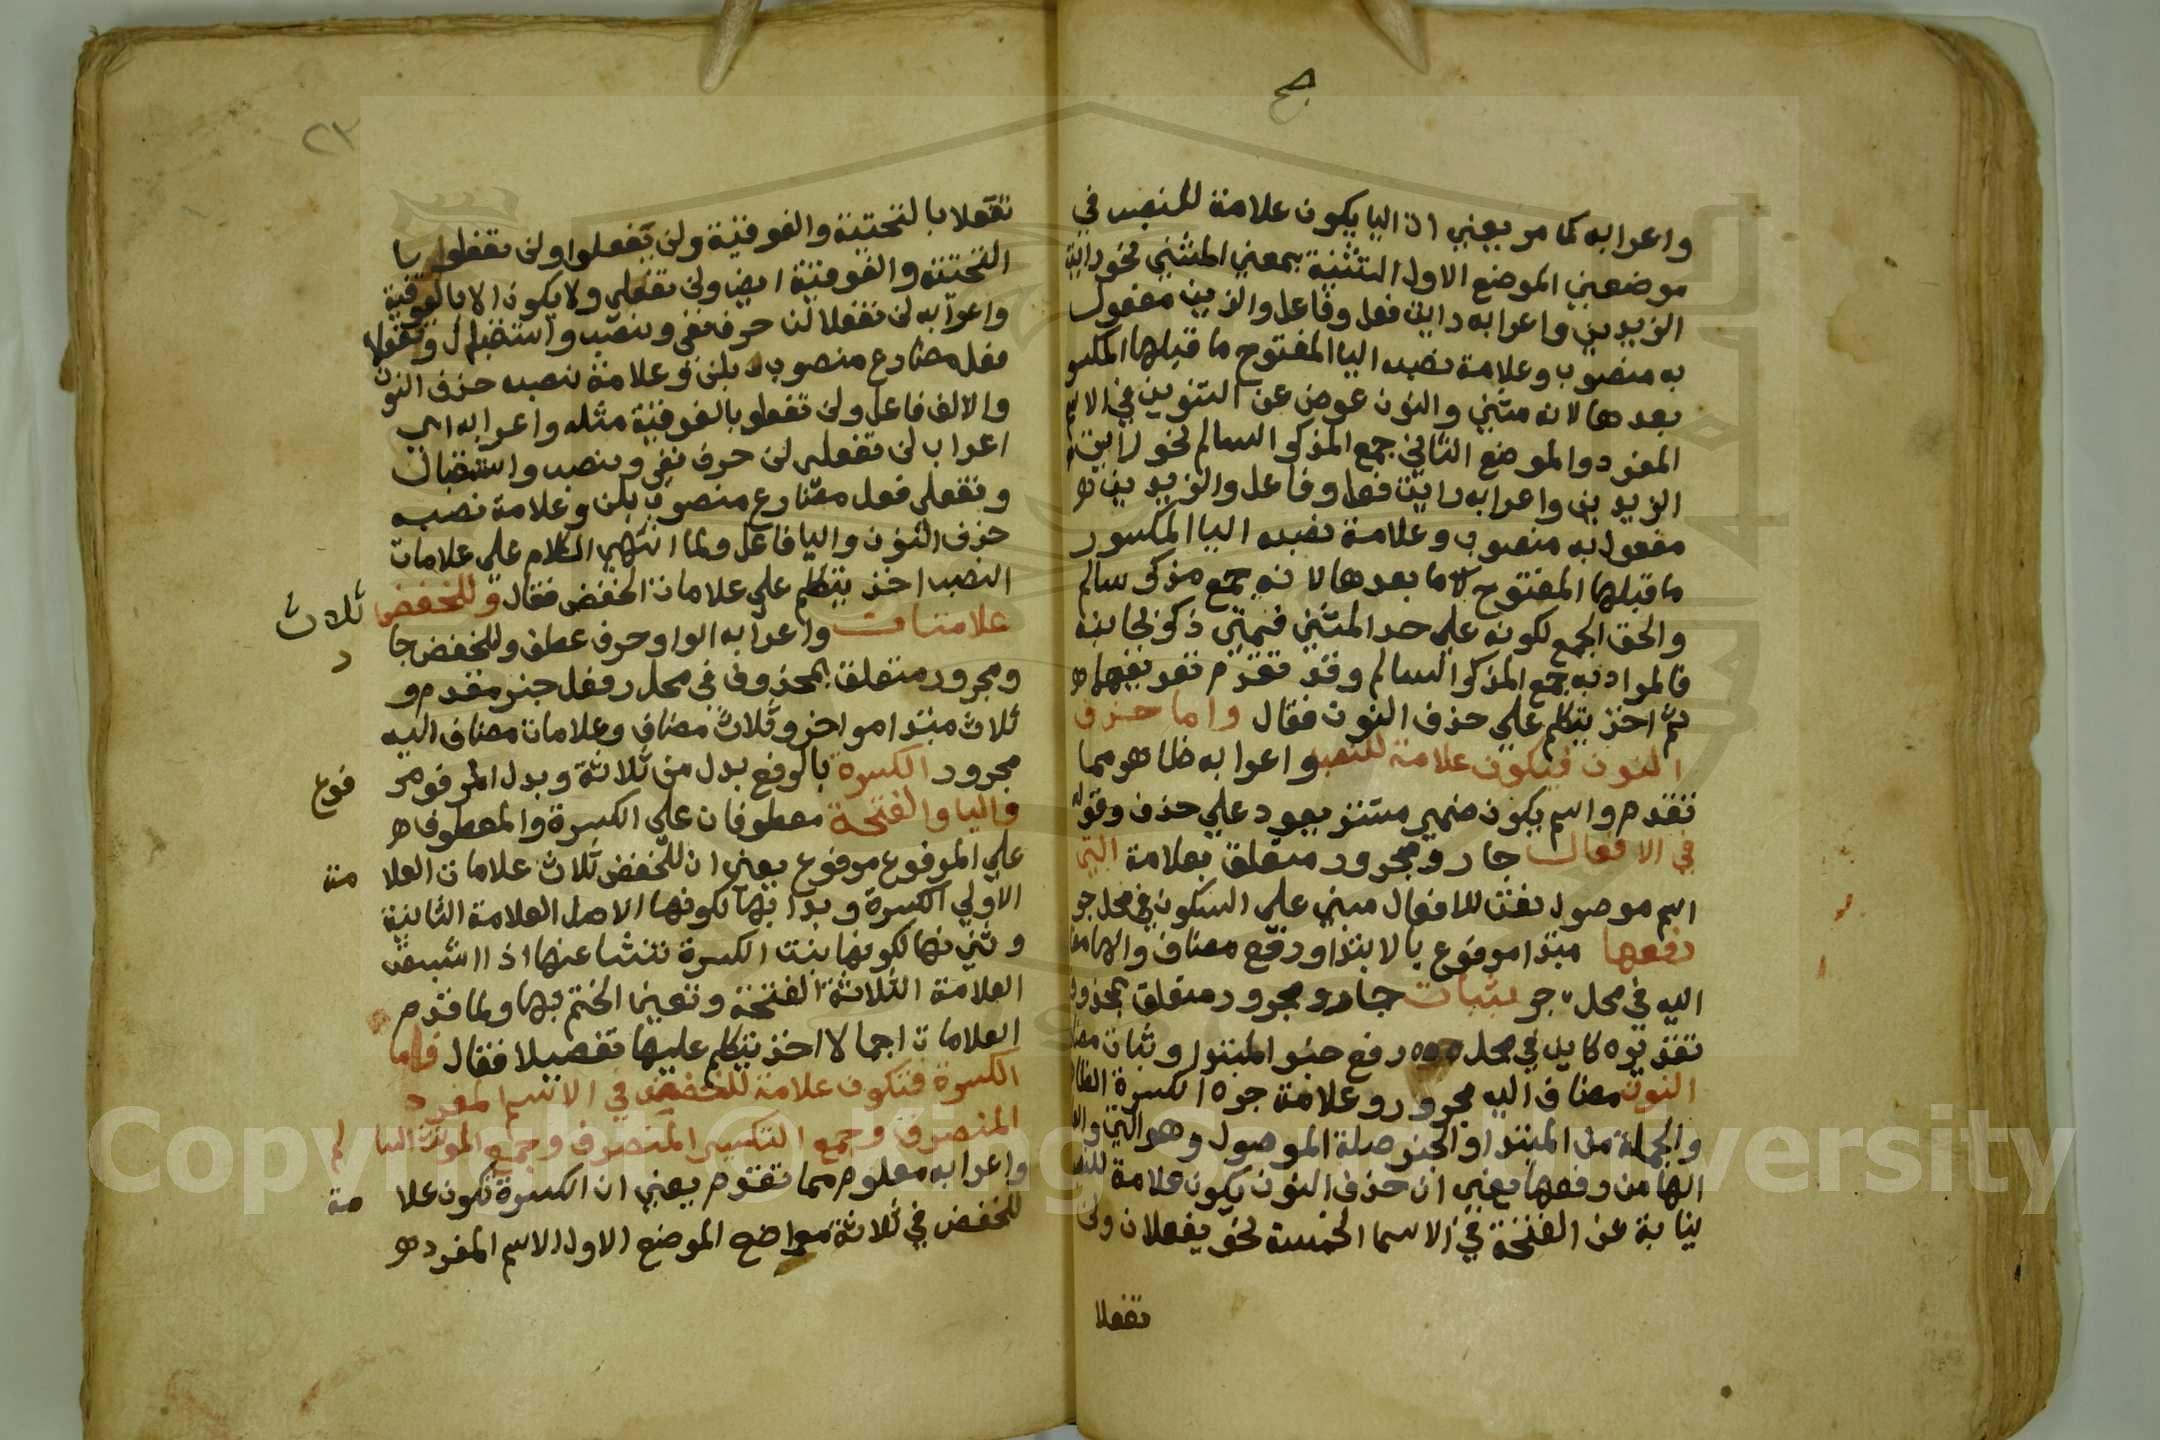 صح
واعرابه كما مر يعني ان اليا يكون علامة للنصب في
موضعين الموضع الاول التثنية بمعني المثني نحو رايت
الزيدين واعرابه رايت فعل وفاعل والزيدين مفعول
به منصوب وعلامة نصبه اليا المفتوح ما قبلها المكسو
بعدها لانه مثني والنون عوض عن التنوين في الاسم
المفرد والموضع الثاني جمع المذكر السالم نحو رايت
الزيدين واعرابه رايت فعل وفاعل والزيدين
مفعول به منصوب وعلامة نصبه اليا المكسور
ما قبلها المفتوح ما بعدها لانه جمع مذكر سالم
والحق الجمع لكونه علي حد المثني فمتي ذكر لجانبه
فالمراد به جمع المذكر السالم وقد تقدم تعريفهما
ثم اخذ يتكلم علي حذف النون فقال واما حذف
النون فيكون علامة للنصب واعرابه ظاهر مما
تقدم واسم يكون ضمير مستتر يعود علي حذف وقوله
في الافعال جار ومجرور متعلق بعلامة التي
اسم موصول نعت للافعال مبني علي السكون في محل جر
رفعها مبتدا مرفوع بالابتدا ورفع مضاف والها مضا
اليه في محل جر بثبات جار ومجرور متعلق بمحذوف
تقديره كاين في محل رفع خبر المبتدا وثبات مضا
النون مضاف اليه مجرور وعلامة جره الكسرة الظا
والجملة من المبتدا والخبر صلة الموصول وهو التي
الها من رفعها يعني ان حذف النون يكون علامة للنصب
نيابة عن الفتحة في الاسما الخمسة نحو يفعلان ولن
تفعلا
٢٣
تفعلا بالتحتية والفوقية ولن يفعلوا ولن تفعلوا با
التحتية والفوقية ايض ولن تفعلي ولا يكون الا بالفوقية
واعرابه لن تفعلا لن حرف نفي ونصب واستقبال وتفعلا
فعل مضارع منصوب بلن وعلامة نصبه حذف النون
والالف فاعل ولن تفعلو بالفوقية مثله واعرابه اي
اعراب لن تفعلي لن حرف نفي ونصب واستقبال
وتفعلي فعل مضارع منصوب بلن وعلامة نصبه
حذف النون واليا فاعل ولما انتهي الكلام علي علامات
النصب اخذ يتكلم علي علامات الخفض فقال وللخفض ثلاث
علامات واعرابه الواو حرف عطف وللخفض جا ر
ومجرور متعلق بمحذوف في محل رفعل خبر مقدم و
ثلاث مبتدا مواخر وثلاث مضاف وعلامات مضاف اليه
مجرور الكسرة بالرفع بدل من ثلاثة وبدل المرفو مر فوع
واليا والفتحة معطوفان علي الكسرة والمعطوف
علي المرفوع مرفوع يعني ان للخفض ثلاث علامات العلا مة
الاولي الكسرة وبدا بها لكونها الاصل العلامة الثانية
وثني بها لكونها بنت الكسرة تنشا عنها اذا اشبعت
العلامة الثلاثة الفتحة وتعين الختم بها ولما قدم
العلامات اجمالا اخذ يتكلم عليها تفصيلا فقال فاما
الكسرة فتكون علامة للخفض في الاسم المفرد
المنصرف وجمع التكسير المنصرف وجمع المونث السا لم
واعرابه معلوم مما تقدم يعني ان الكسرة تكون علا مة
للخفض في ثلاثة مواضع الموضع الاول الاسم المفرد
Copyright © King Saud University